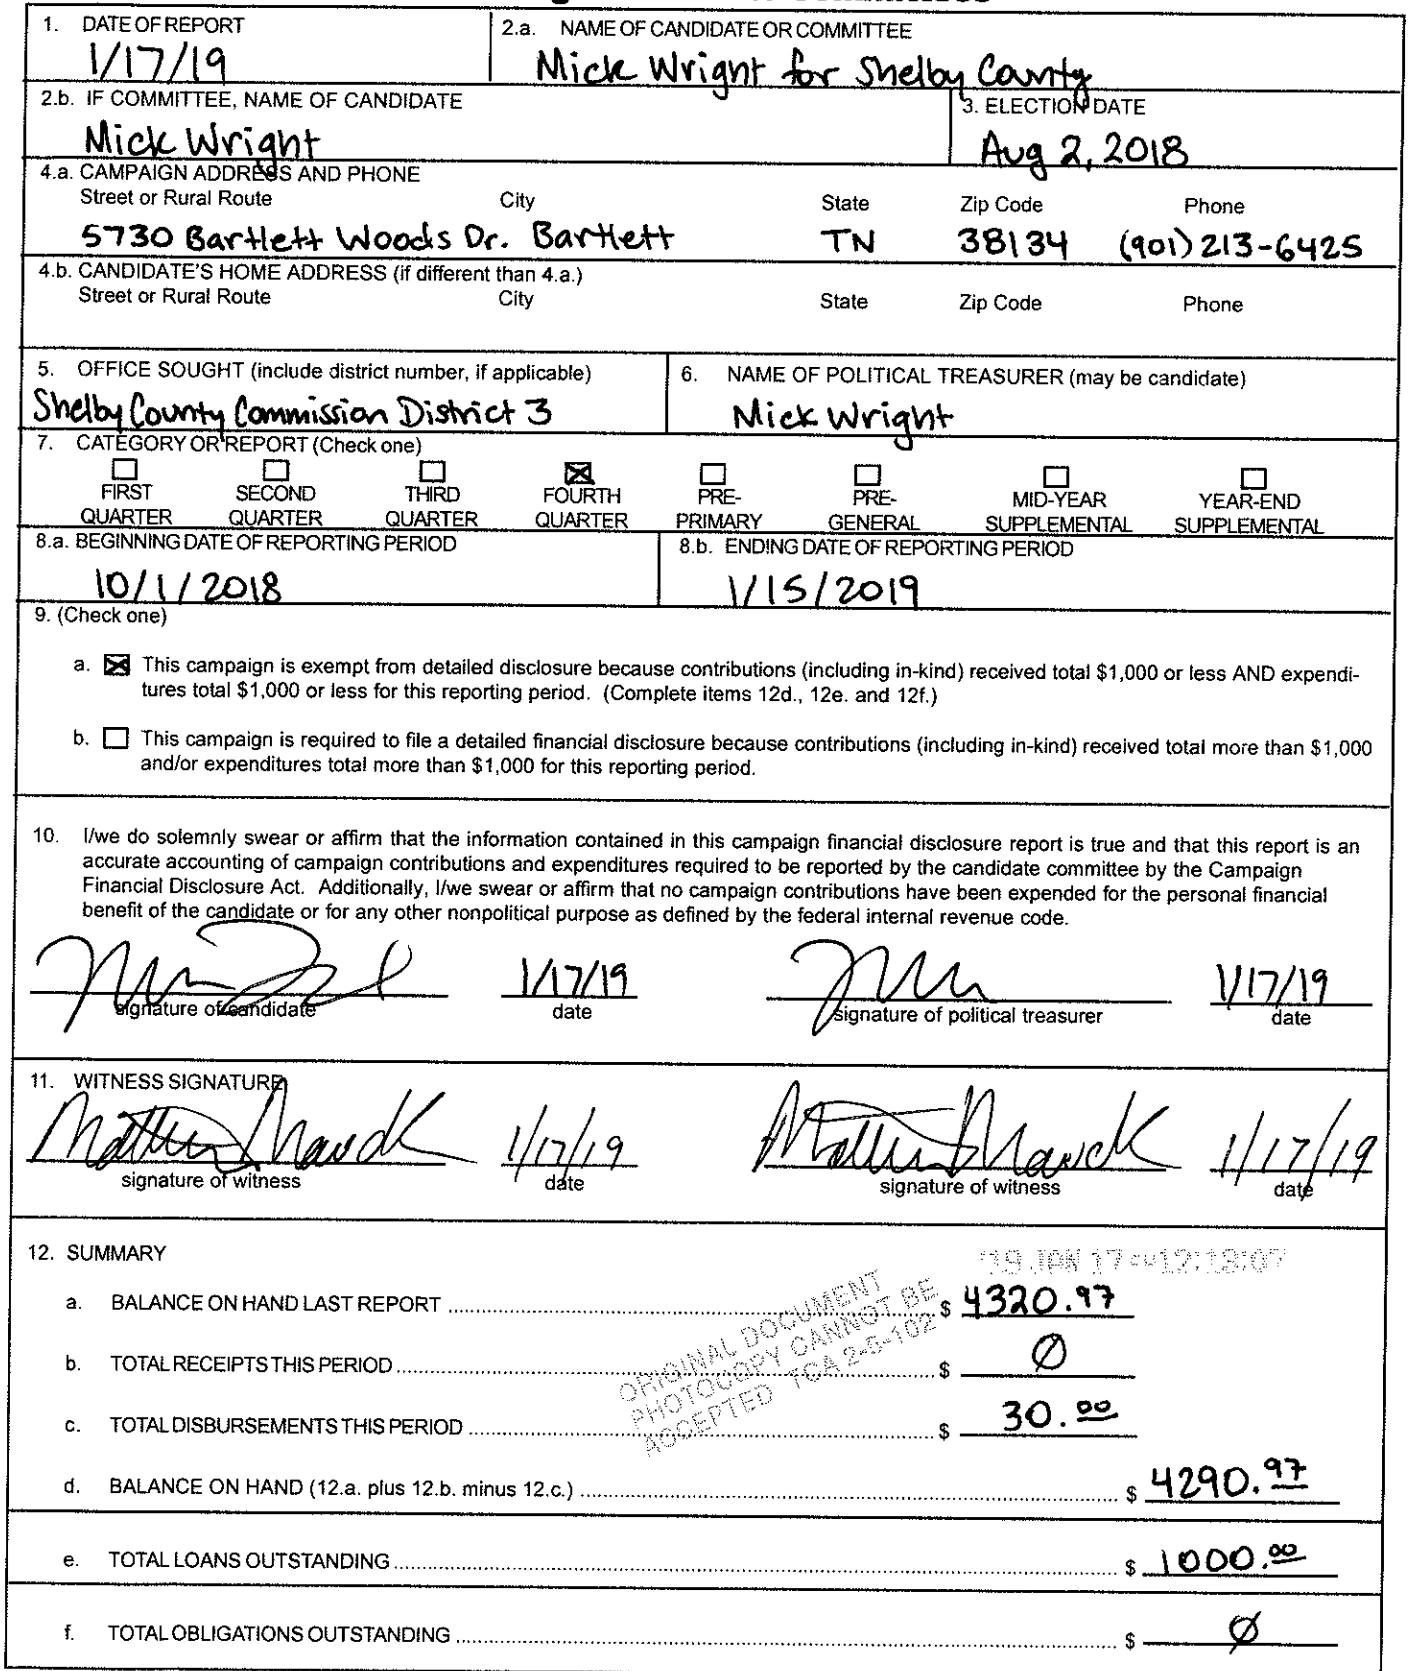 1. DATE OF REPORT
1/17/19
2.a. NAME OF CANDIDATE OR COMMITTEE
Mick Wright for Shelby County
2.b. IF COMMITTEE, NAME OF CANDIDATE
Mick Wright
3. ELECTION DATE
Aug 2, 2018
4.a. CAMPAIGN ADDRESS AND PHONE
Street or Rural Route City State Zip Code Phone
5730 Bartlett Woods Dr. Bartlett TN 38134 (901) 213-6425
4.b. CANDIDATE'S HOME ADDRESS (if different than 4.a.)
Street or Rural Route City State Zip Code Phone
5. OFFICE SOUGHT (include district number, if applicable)
Shelby County Commission District 3
6. NAME OF POLITICAL TREASURER (may be candidate)
Mick Wright
7. CATEGORY OR REPORT (Check one)
FIRST QUARTER
SECOND QUARTER
THIRD QUARTER
FOURTH QUARTER
PRE-PRIMARY
PRE-GENERAL
MID-YEAR SUPPLEMENTAL
YEAR-END SUPPLEMENTAL
8.a. BEGINNING DATE OF REPORTING PERIOD
10/1/2018
8.b. ENDING DATE OF REPORTING PERIOD
1/15/2019
9. (Check one)
a. This campaign is exempt from detailed disclosure because contributions (including in-kind) received total $1,000 or less AND expendi-
tures total $1,000 or less for this reporting period. (Complete items 12d., 12e. and 12f.)
b. This campaign is required to file a detailed financial disclosure because contributions (including in-kind) received total more than $1,000
and/or expenditures total more than $1,000 for this reporting period.
10. I/we do solemnly swear or affirm that the information contained in this campaign financial disclosure report is true and that this report is an
accurate accounting of campaign contributions and expenditures required to be reported by the candidate committee by the Campaign
Financial Disclosure Act. Additionally, I/we swear or affirm that no campaign contributions have been expended for the personal financial
benefit of the candidate or for any other nonpolitical purpose as defined by the federal internal revenue code.
1/17/19 1/17/19
signature of candidate date signature of political treasurer date
11. WITNESS SIGNATURE
1/17/19 1/17/19
signature of witness date signature of witness date
12. SUMMARY
'19 JAN 17 12:18:07
ORIGINAL DOCUMENT
PHOTOCOPY CANNOT BE
ACCEPTED TCA 2-5-102
a. BALANCE ON HAND LAST REPORT $ 4320.97
b. TOTAL RECEIPTS THIS PERIOD $ Ø
c. TOTAL DISBURSEMENTS THIS PERIOD $ 30.00
d. BALANCE ON HAND (12.a. plus 12.b. minus 12.c.) $ 4290.97
e. TOTAL LOANS OUTSTANDING $ 1000.00
f. TOTAL OBLIGATIONS OUTSTANDING $ Ø